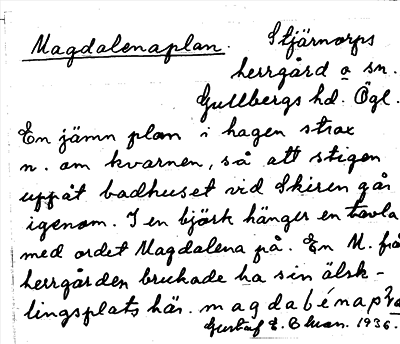 Magdalenaplan. Stjärnorps
herrgård o sn.
Gullbergs hd. Ögl.
En jämn plan i hagen strax
n. om kvarnen, så att stigen
uppåt badhuset vid Skiren går
igenom. I en björk hänger en tavla
med ordet Magdalena på. En M. frå
herrgården brukade ha sin älsk-
lingsplats här.
Gustaf E. 1936.